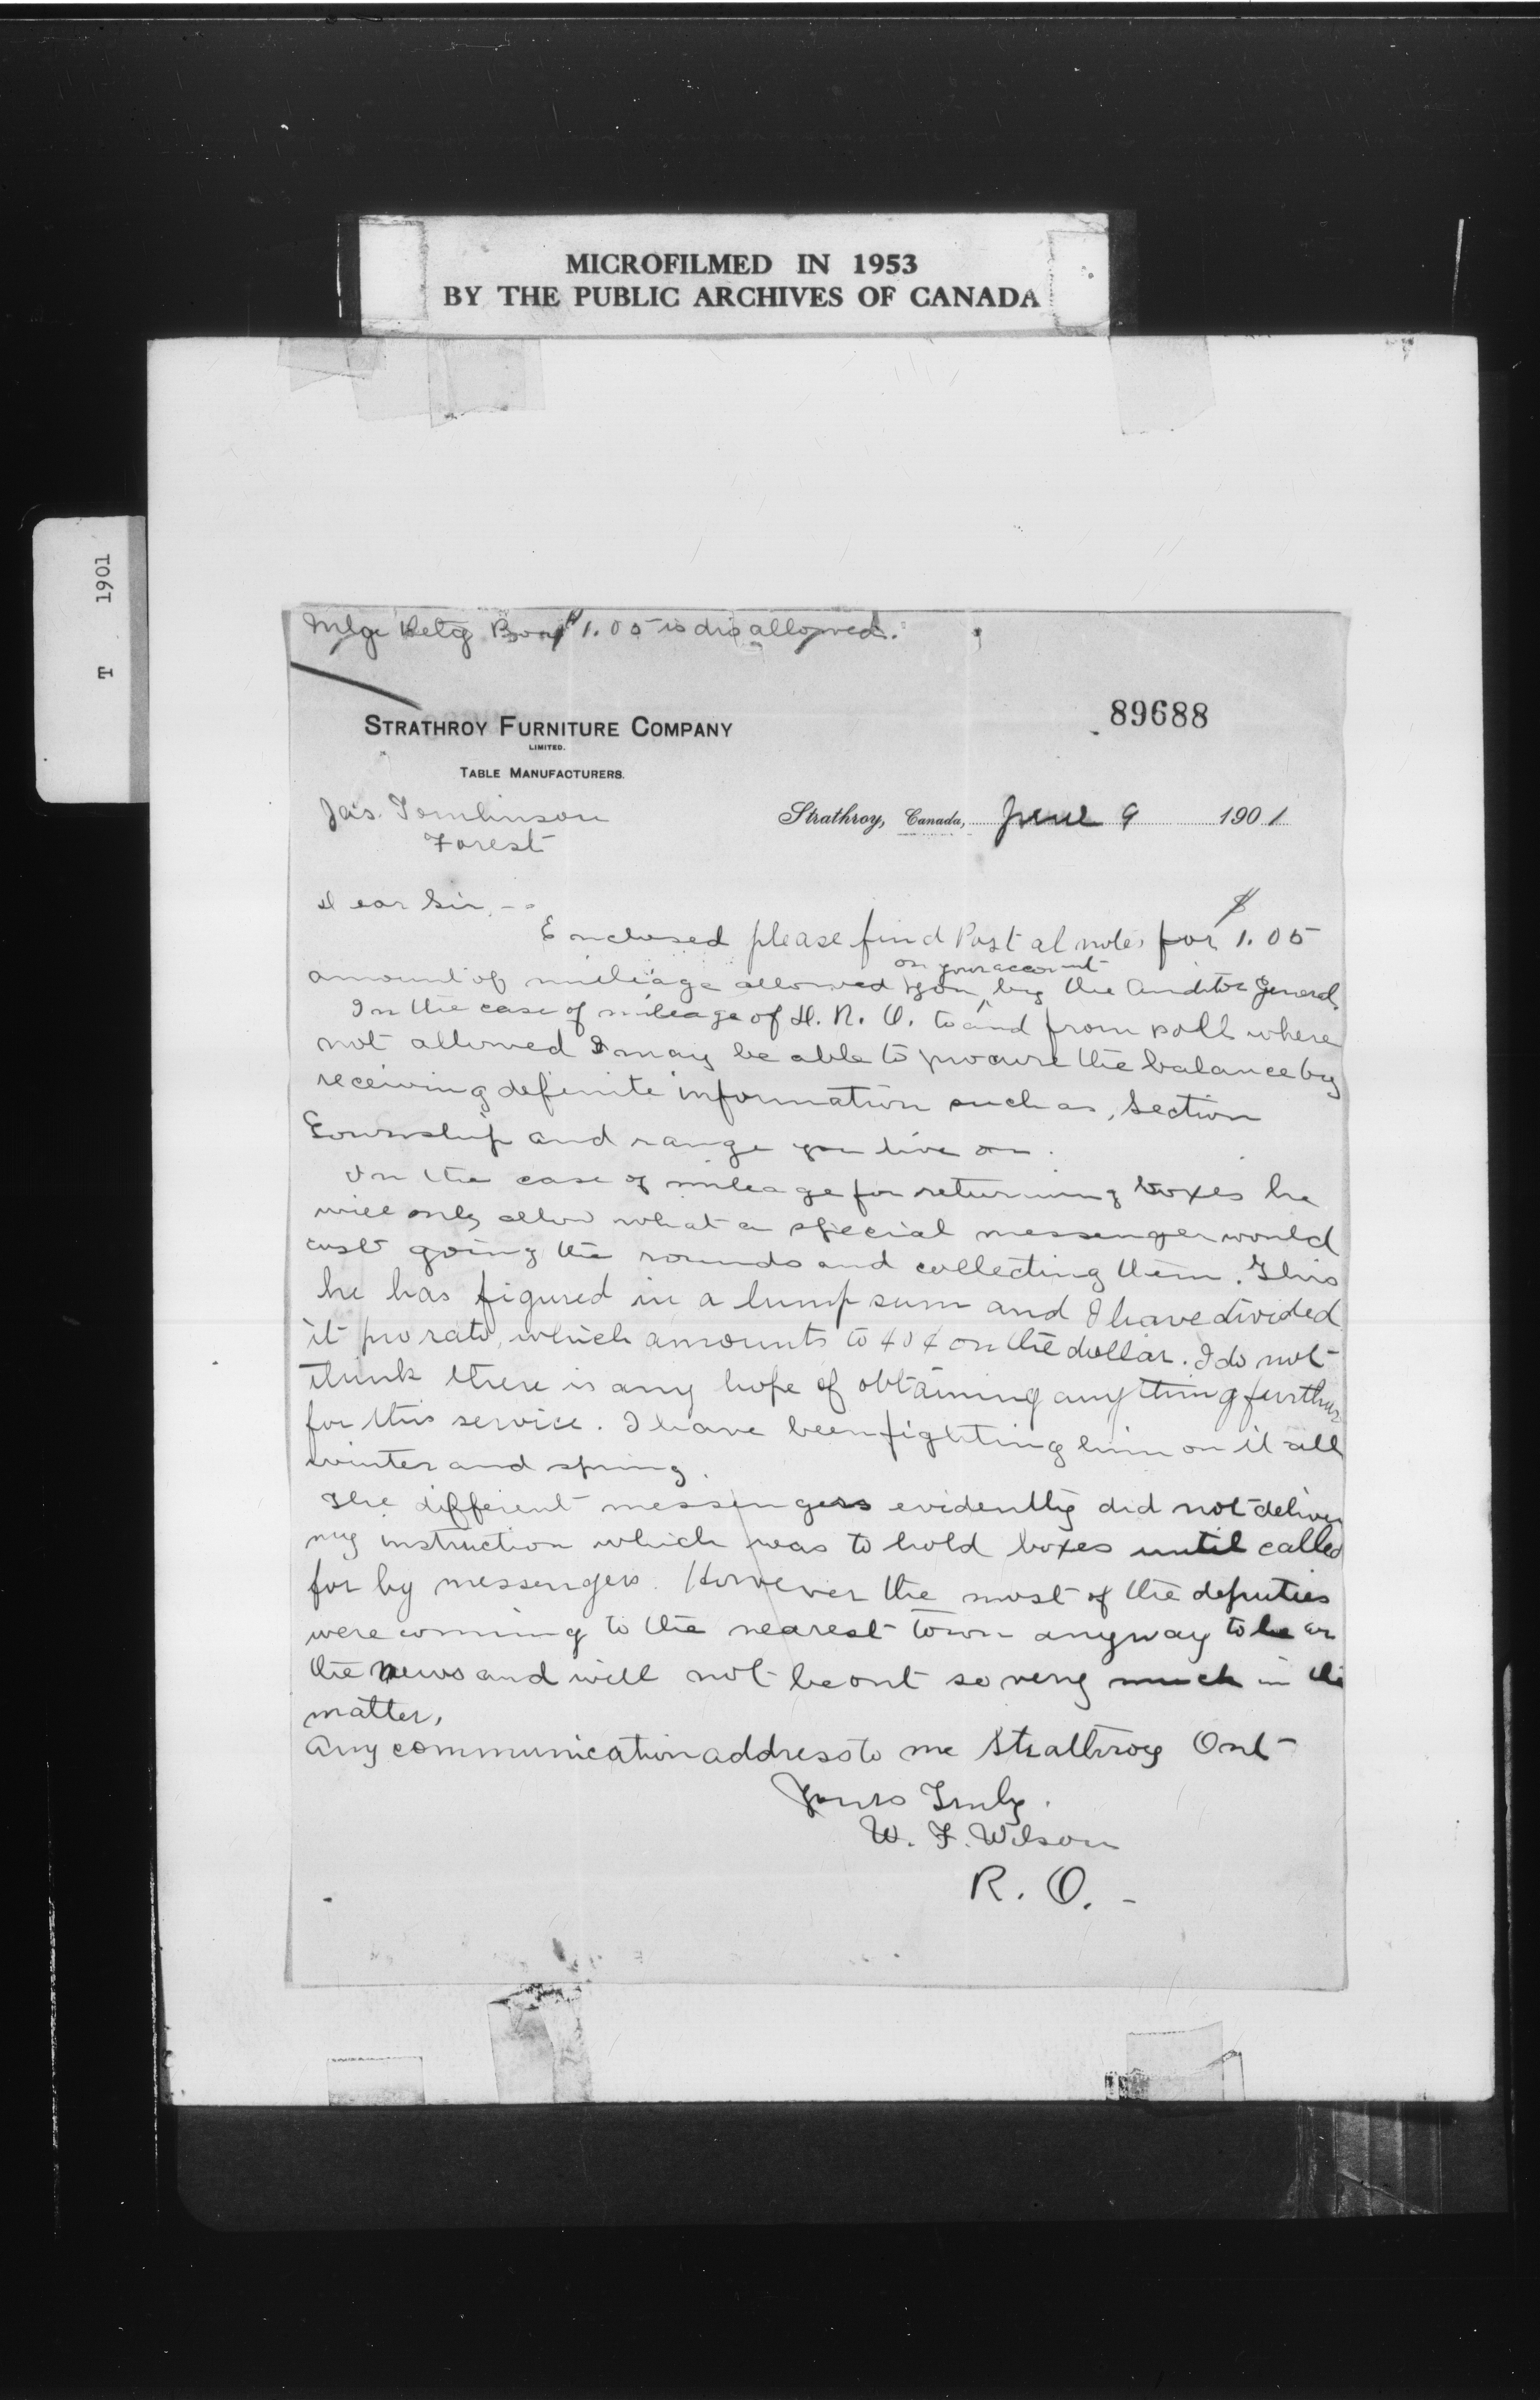 MICROFILMED IN 1953
BY THE PUBLIC ARCHIVES OF CANADA
T 1901
Mlge Retg Box $1.05 is disallowed.
89688
STRATHROY FURNITURE COMPANY
LIMITED.
TABLE MANUFACTURERS.
Jas. Tomlinson
Forest
Strathroy, Canada, June 9 1901
Dear Sir, --
Enclosed please find Postal notes for $1.05
amount of mileage allowed you on your account by the Auditor General.
In the case of mileage of D. R. O. to and from poll where
not allowed I may be able to procure the balance by
receiving definite information such as, Section
Township and range you live on.
In the case of mileage for returning boxes he
will only allow what a special messenger would
cost going the rounds and collecting them. This
he has figured in a lump sum and I have divided
it pro rato, which amounts to 40¢ on the dollar. I do not
think there is any hope of obtaining anything further
for this service. I have been fighting him on it all
winter and spring.
The different messengers evidently did not deliver
my instruction which was to hold boxes until called
for by messengers. However the most of the deputies
were coming to the nearest town anyway to hear
the news and will not be out so very much in the
matter,
Any communication address to me Strathroy Ont
Yours Truly.
W. F. Wilson
R. O. -